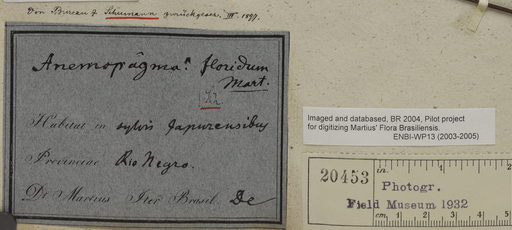 Von Bureau & Schumann zurückgeser. III. 1897.
Anemopægma floridum
Mart.
Habitat in sylvis Japurensibus
Provinciae Rio Negro.
Dr Martius Iter Brasil. De
Imaged and databased, BR 2004, Pilot project
for digitizing Martius' Flora Brasiliensis.
ENBI-WP13 (2003-2005)
in. 1
20453
Photogr.
Field Museum 1932
cm. 1 2 3 4 5